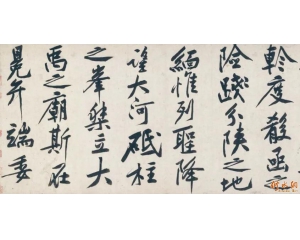 軫度殽函之
險踐分陝之地
緬惟列聖降
望大河砥柱
之峯桀立大
禹之廟斯在
冕弁端委